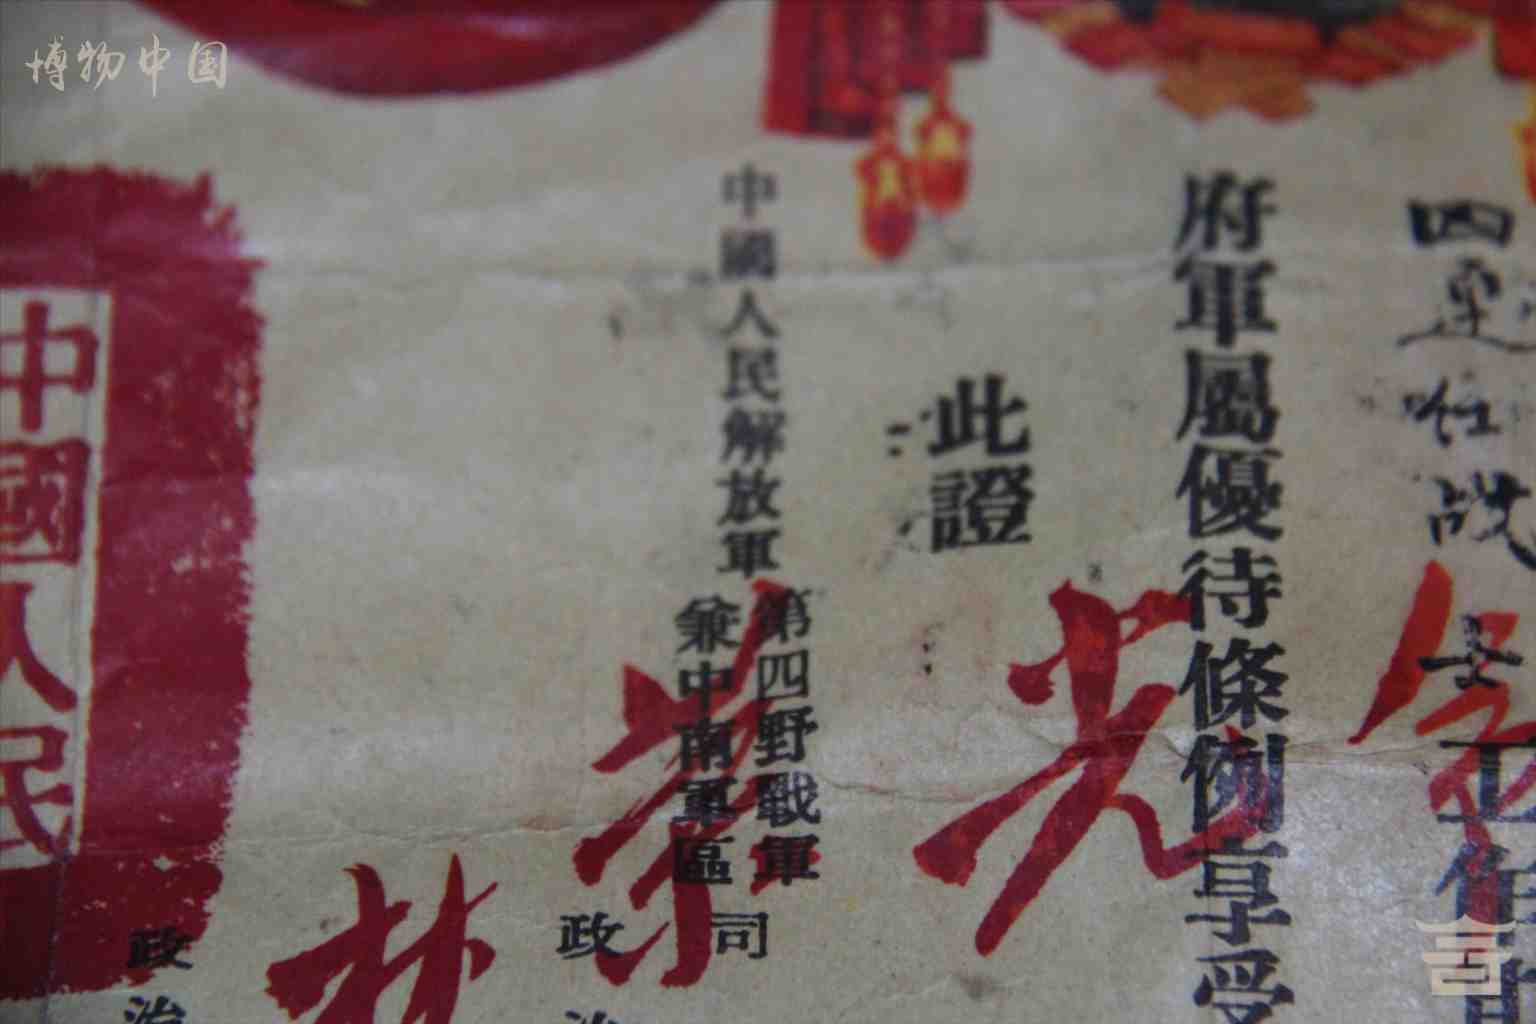 博物中国
四連任战士工作
府軍屬優待條例享受
此證
中國人民解放軍
第四野戰軍
兼中南軍區
司
政治
政治
光榮
林
中國人民